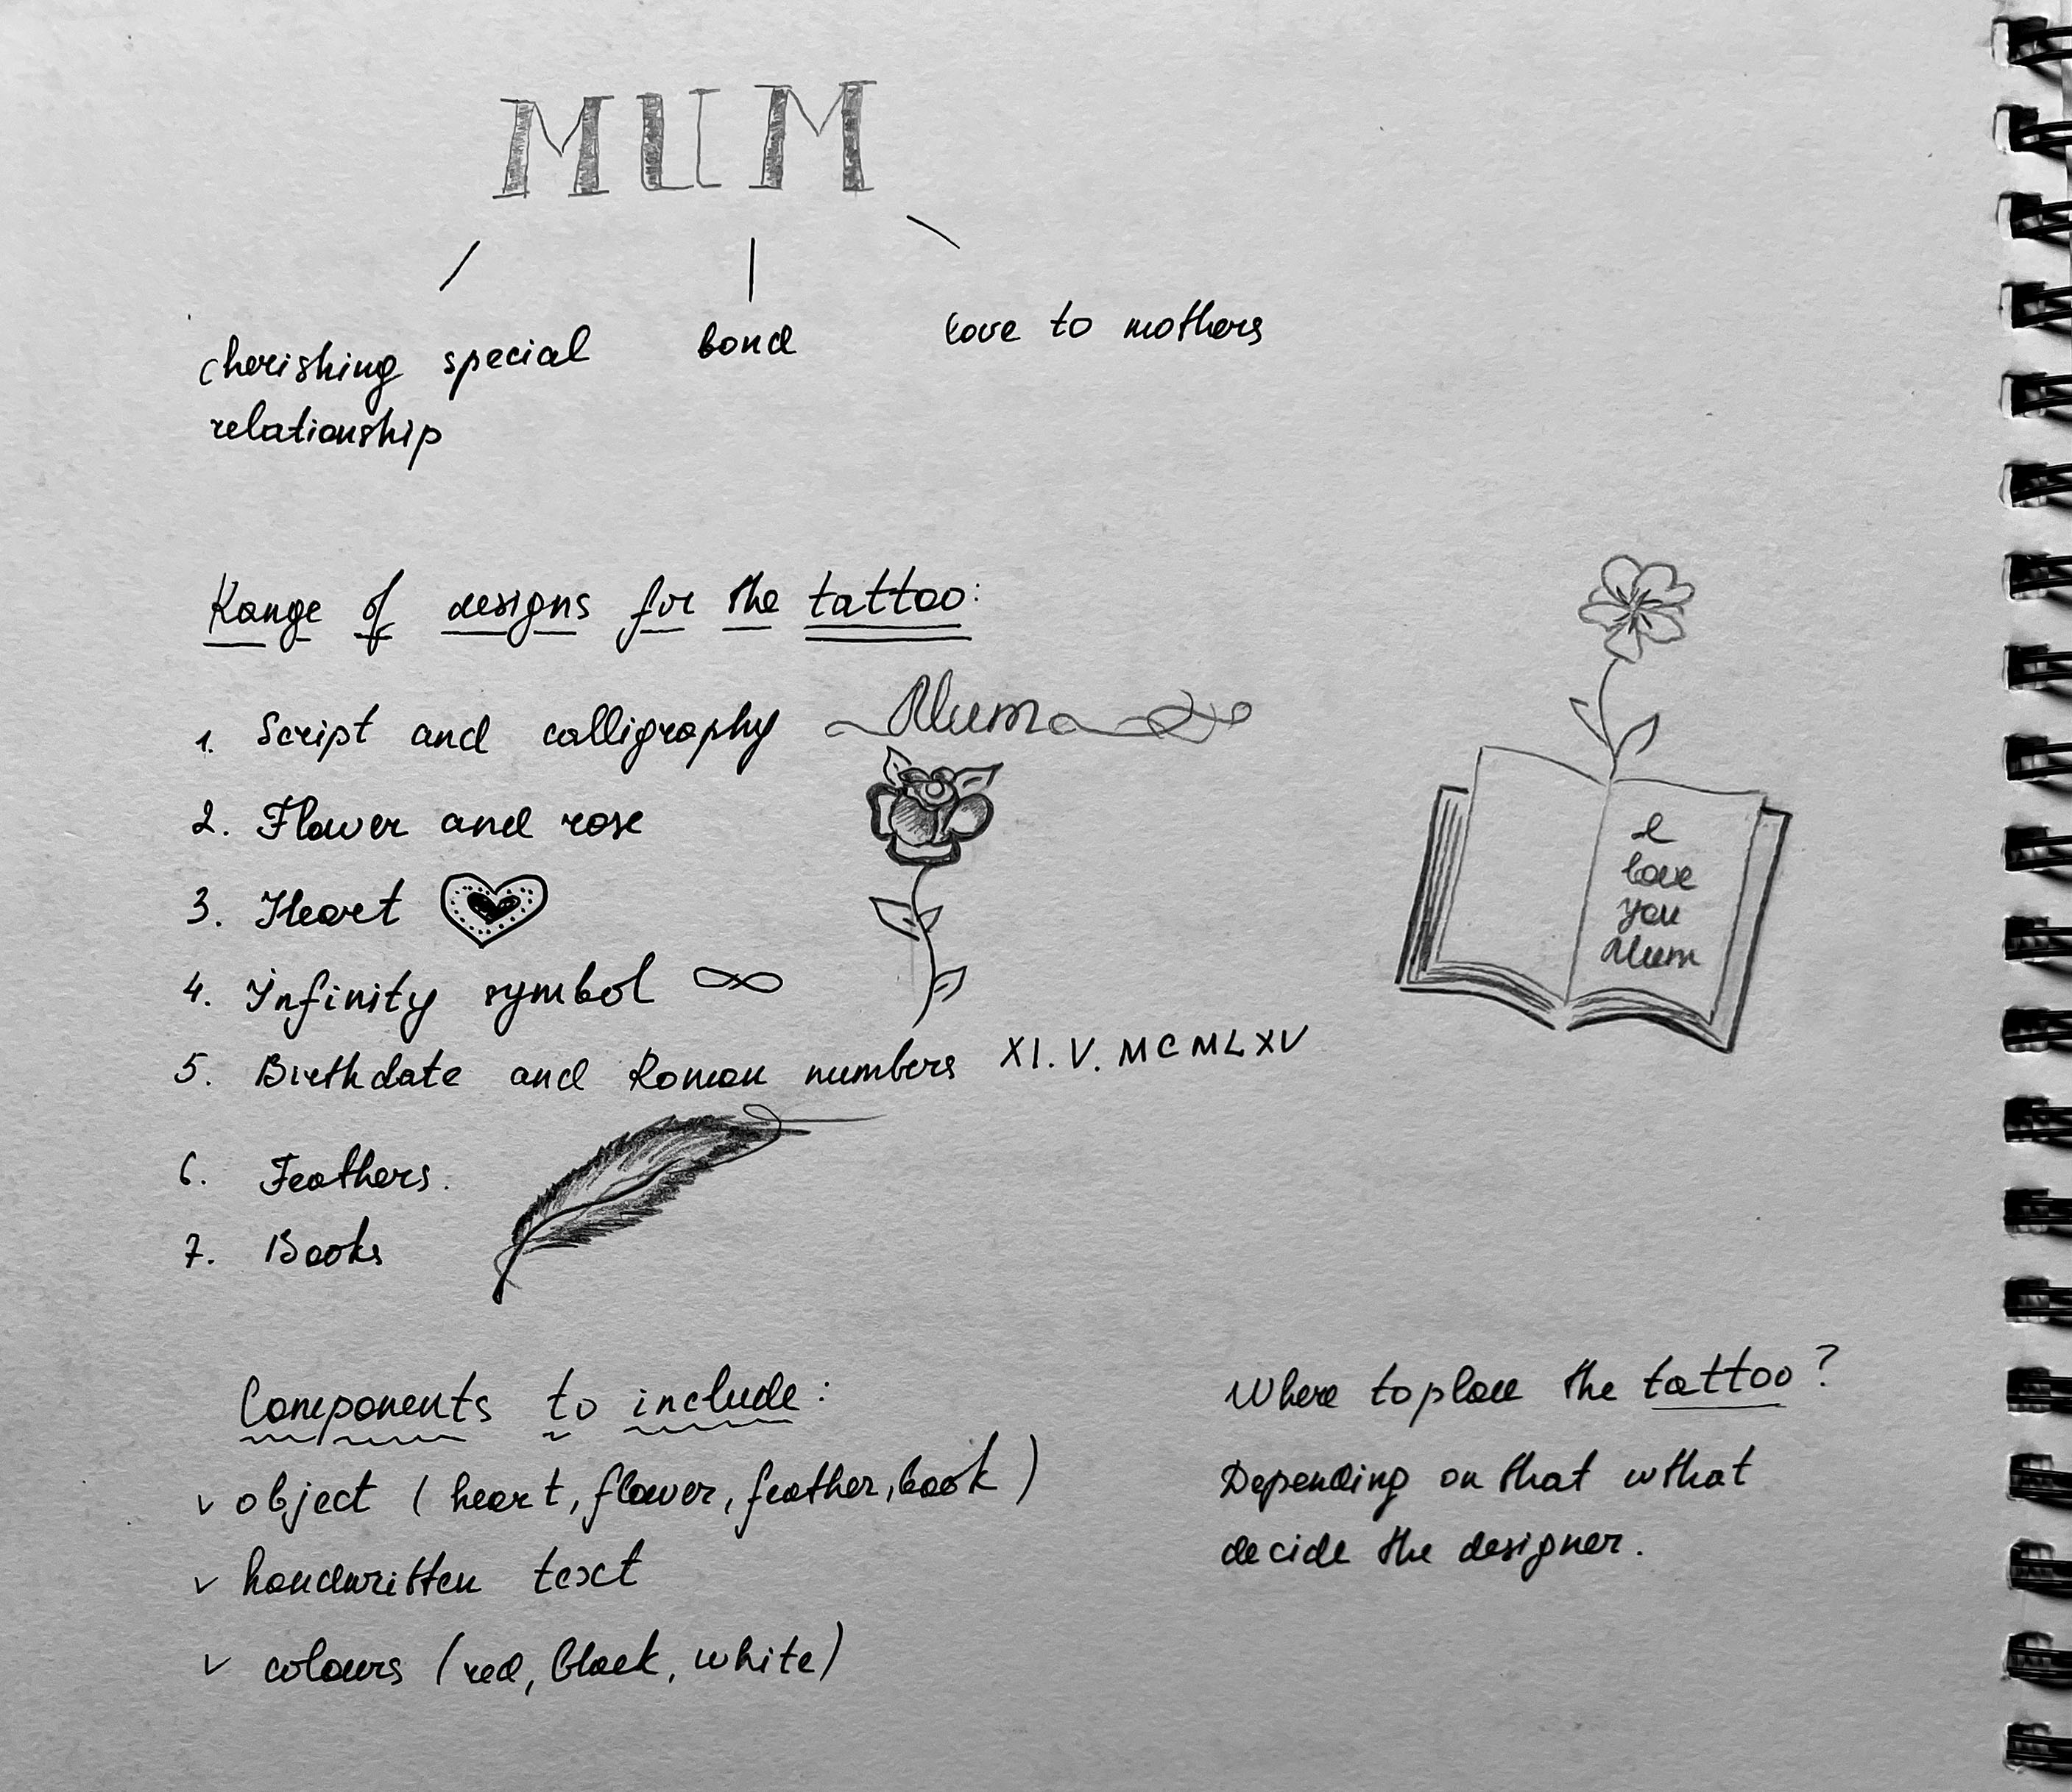 MUM
cherishing special
relationship
bond
love to mothers
Range of designs for the tattoo:
1. Script and calligraphy Mum
2. Flower and rose
3. Heart
4. Infinity symbol ∞
5. Birthdate and Roman numbers XI. V. MCMLXV
6. Feathers.
7. Books
I
love
you
Mum
Components to include:
v object (heart, flower, feather, book)
v handwritten text
v colours (red, black, white)
Where to place the tattoo?
Depending on that what
decide the designer.